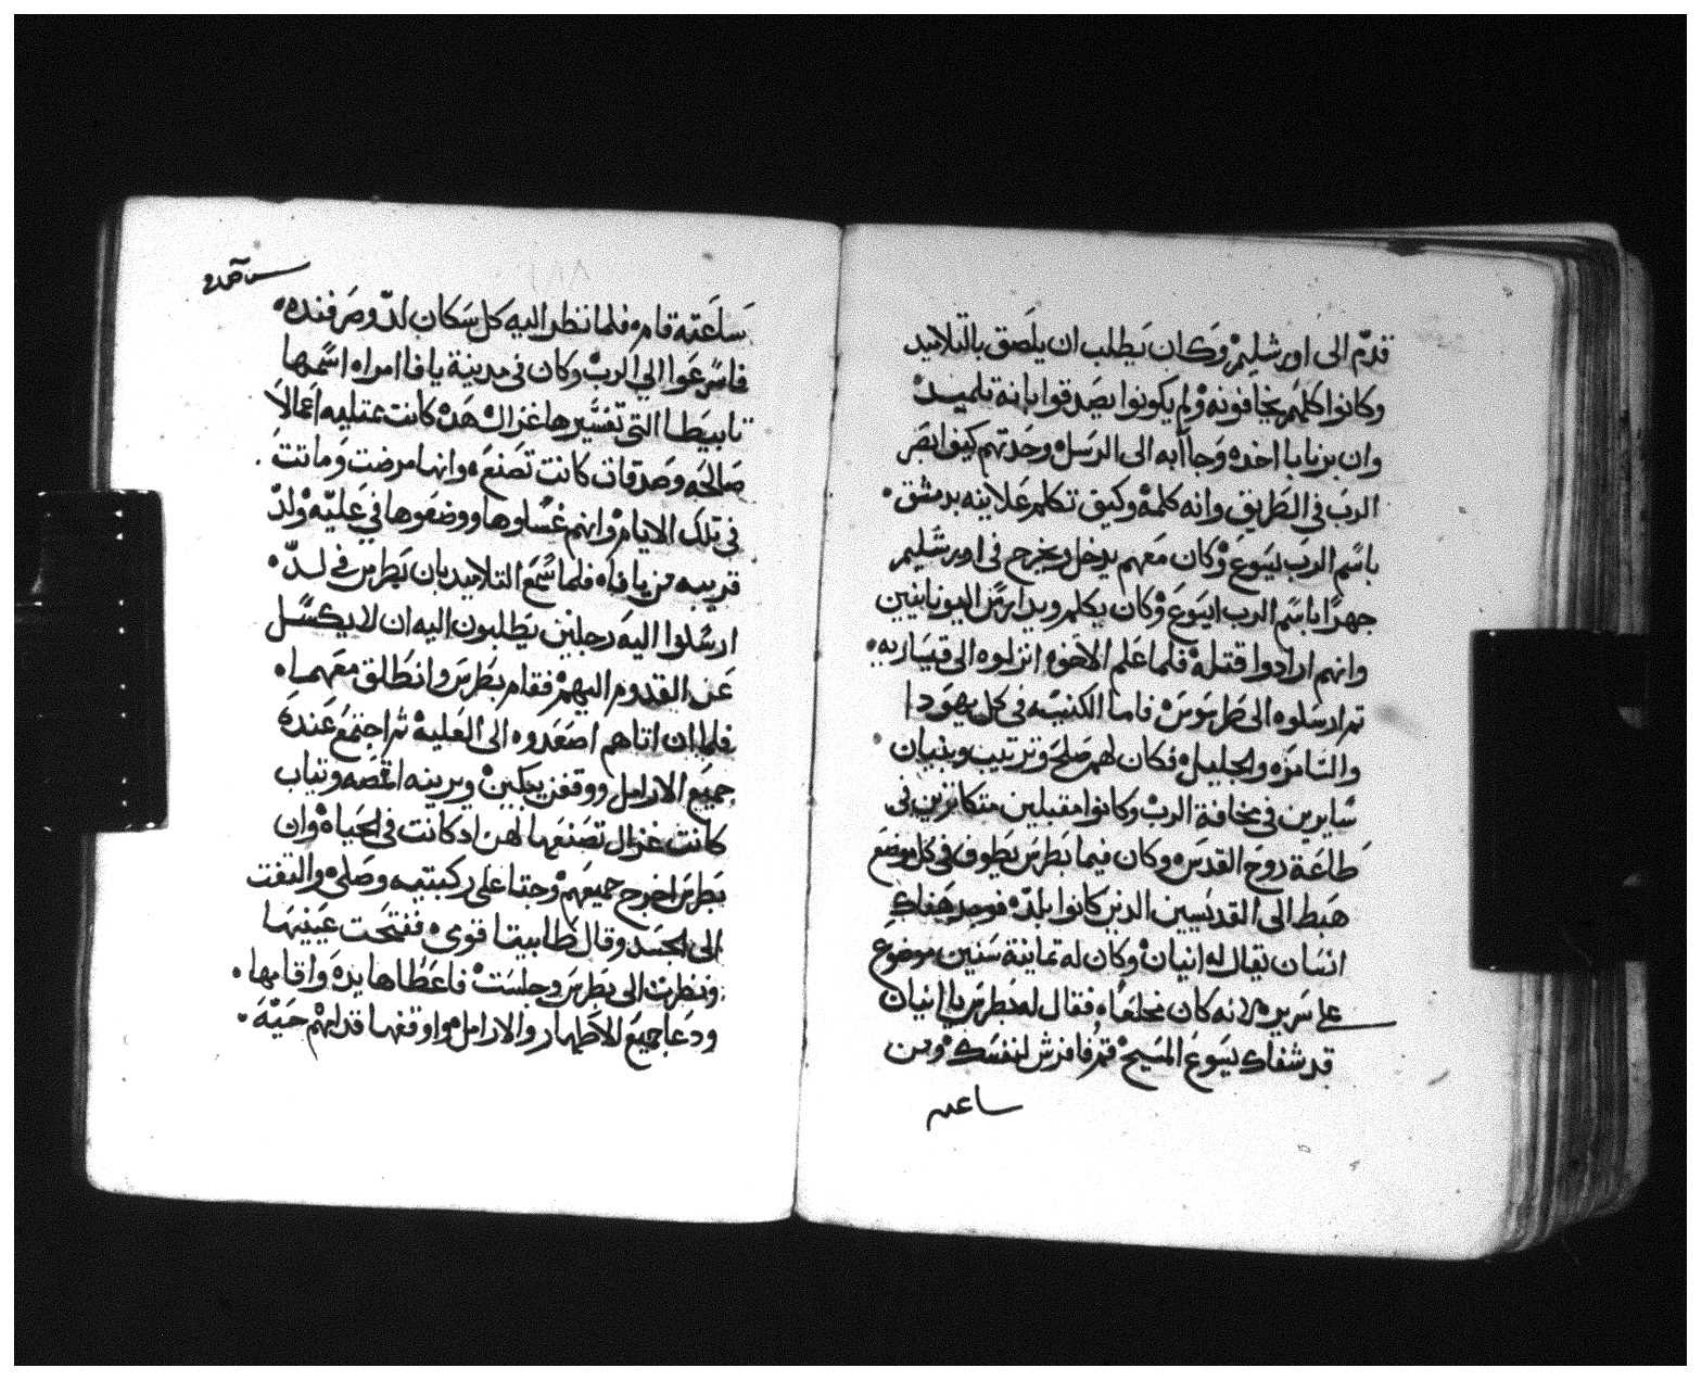 قدّم الى اورشليم وكان يطلب ان يلصق بالتلاميد
وكانوا كلهم يخافونه ولم يكونوا يصدقوا بانه تلميد
وان برنابا اخده وجاآبه الى الرسل وحدتهم كيف ابصر
الرب في الطريق وانه كلمه وكيف تكلم علانيه بدمشق
باسم الرب يسوع وكان معهم يدخل ويخرج في اورشليم
جهرًا باسم الرب ايسوع وكان يكلم ويدارس اليونانيين
وانهم ارادوا قتله فلما علم الاخوه انزلوه الى قيساريه
تم ارسلوه الى طرسوس فاما الكنيسه في كل يهودا
والسامره والجليل فكان لهم صلح وترتيب وبنيان
سايرين في مخافة الرب وكانوا مقبلين متكاترين في
طاعة روح القدس وكان فيما بطرس يطوف في كل موضع
هبط الى القديسين الدين كانوا بلدّه فوجد هناك
انسان يقال له انيان وكان له تمانية سنين موضوع
على سرير لانه كان مخلعًا فقال له بطرس يا انيان
قد شفاك يسوع المسيح قم فافرش لنفسك ومن
ساعته
ساعته قام فلما نظر اليه كل سكان لدّ وصرفنده
فاسرعوا الي الرب وكان في مدينة يافا امراه اسمها
تابيطا التي تفسيرها غزال هده كانت ممتليه اعمالًا
صالحه وصدقات كانت تصنع وانها مرضت وماتت
في تلك الايام وانهم غسلوها ووضعوها في عليّه ولدّ
قريبه من يافا فلما سمع التلاميد بان بطرس في لدّ
ارسلوا اليه رجلين يطلبون اليه ان لا يكسل
عن القدوم اليهم فقام بطرس وانطلق معهما
فلما ان اتاهم اصعدوه الى العليه تم اجتمع عنده
جميع الارامل ووقفن يبكين ويرينه اقمصه وتياب
كانت غزال تصنعها لهن اد كانت في الحياه وان
بطرس اخرج جميعهم وجتا على ركبتيه وصلى والتفت
الى الجسد وقال طابيتا قومي ففتحت عينيها
ونظرت الى بطرس وجلست فاعطاها يده واقامها
ودعا جميع الاطهار والارامل واوقفها قدامهم حيّة